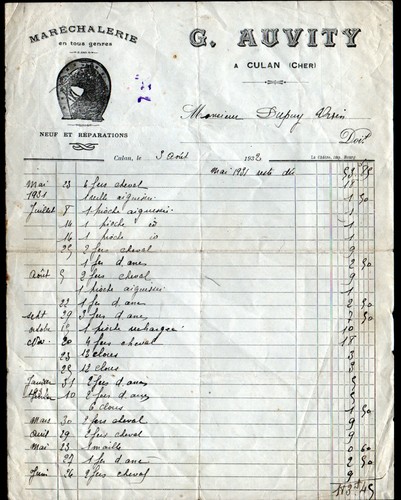 MARÉCHALERIE
en tous genres
NEUF ET RÉPARATIONS
G. AUVITY
A CULAN (CHER)
Monsieur Dupuy
Doit
Culan, le 3 Août 1932
Mai 1931 reste dû 53 85
Mai 23 6 fers cheval 18
1931 1 aiguisée 1 50
Juillet 8 1 pioche aiguisée 1
14 1 pioche io 1
16 1 pioche io 1
25 2 fers cheval 9
1 fer d'ânes 2 50
Août 5 2 fers cheval 9
1 pioche aiguisée 1
22 1 fer d'ânes 2 50
sept 29 3 fers d'ânes 7 50
octobre 15 1 pioche rechargée 10
Nov. 20 4 fers cheval 18
23 13 clous
25 12 clous
Janvier 31 2 fers d'ânes 5
Février 10 2 fers d'ânes 5
6 clous 1 50
Mars 30 2 fers cheval 9
Avril 29 2 fers cheval 9
Mai 23 1 maille 0 60
27 1 fer d'âne 2 50
Juin 26 2 fers cheval 9